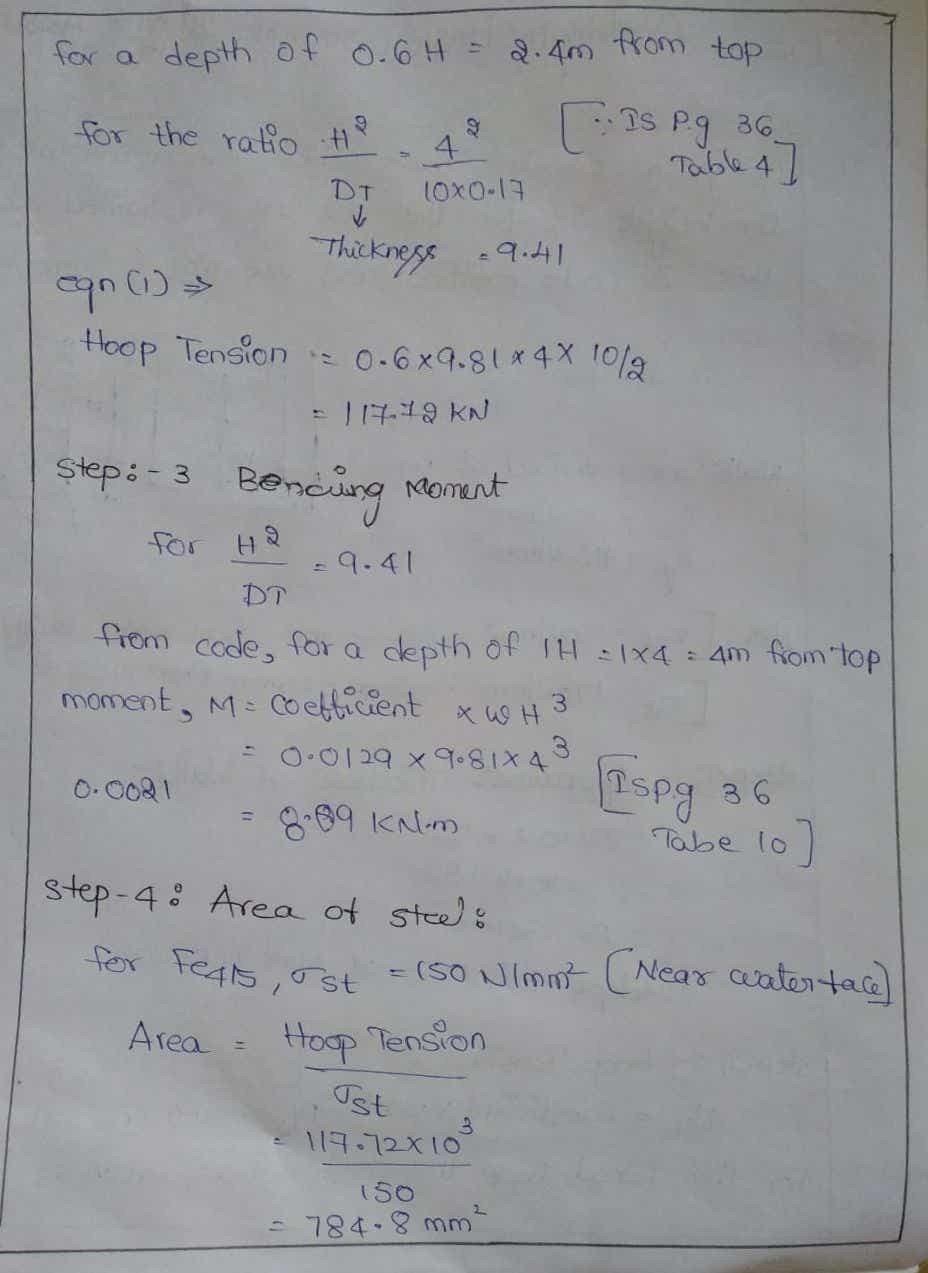 for a depth of 0.6 H = 2.4m from top
for the ratio H² / DT = 4² / 10x0.17 [∵ IS P.g 36 Table 4]
↓
Thickness = 9.41
eqn (1) ⇒
Hoop Tension = 0.6 x 9.81 x 4 x 10/2
= 117.72 KN
Step:- 3 Bending Moment
for H² / DT = 9.41
from code, for a depth of 1H = 1x4 = 4m from top
moment, M = coefficient x w H³
= 0.0129 x 9.81 x 4³ [IS P.g 36
0.0021
= KN.m Tabe 10]
Step-4: Area of steel:
for Fe415, σst = 150 N/mm² [Near water face]
Area = Hoop Tension / σst
= 117.72 x 10³ / 150
= 784.8 mm²